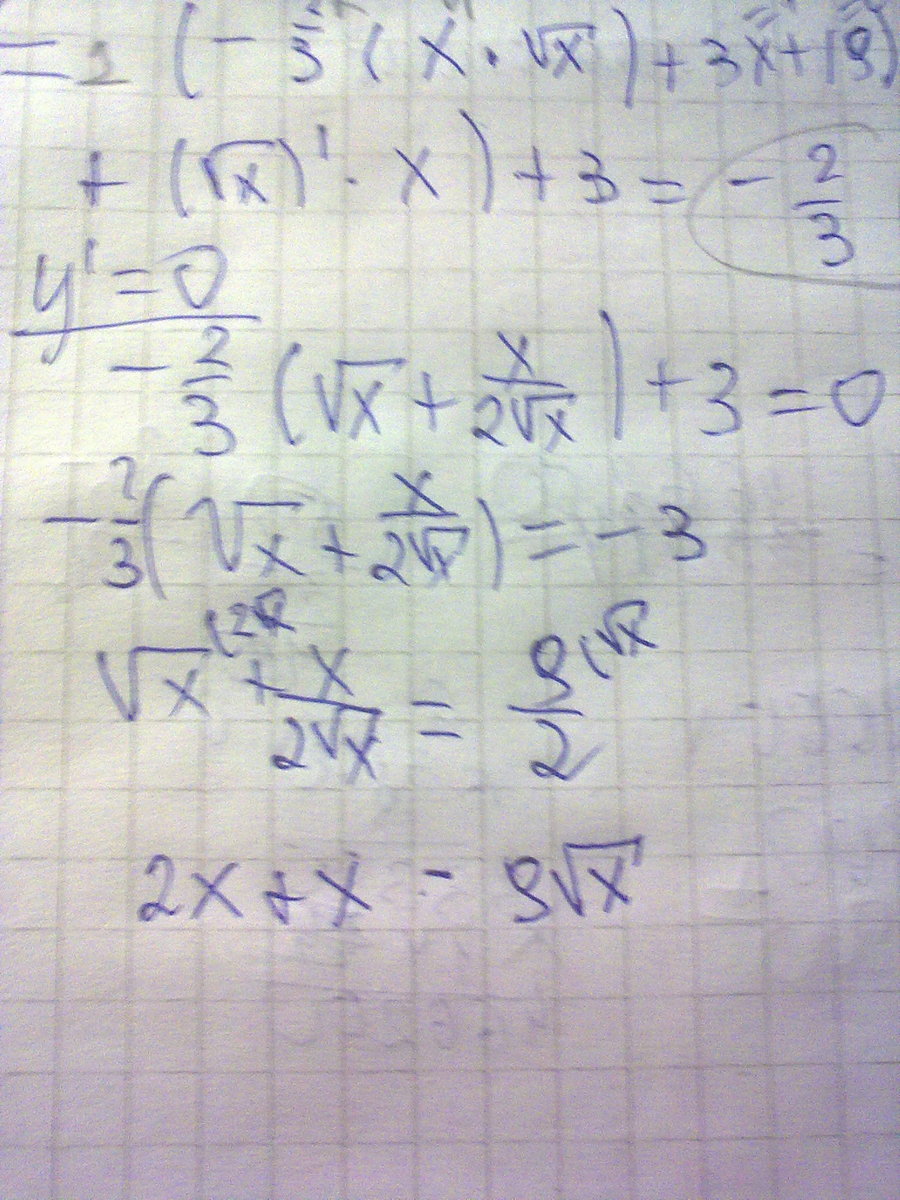 = (- (x · √x) + 3x +
+ (√x)' · x) + 3 = - 2/3
y' = 0
- 2/3 (√x + x/(2√x)) + 3 = 0
- 2/3 (√x + x/(2√x)) = - 3
√x (2√x + x/(2√x) = 9/2 (√x
2x + x - 9√x